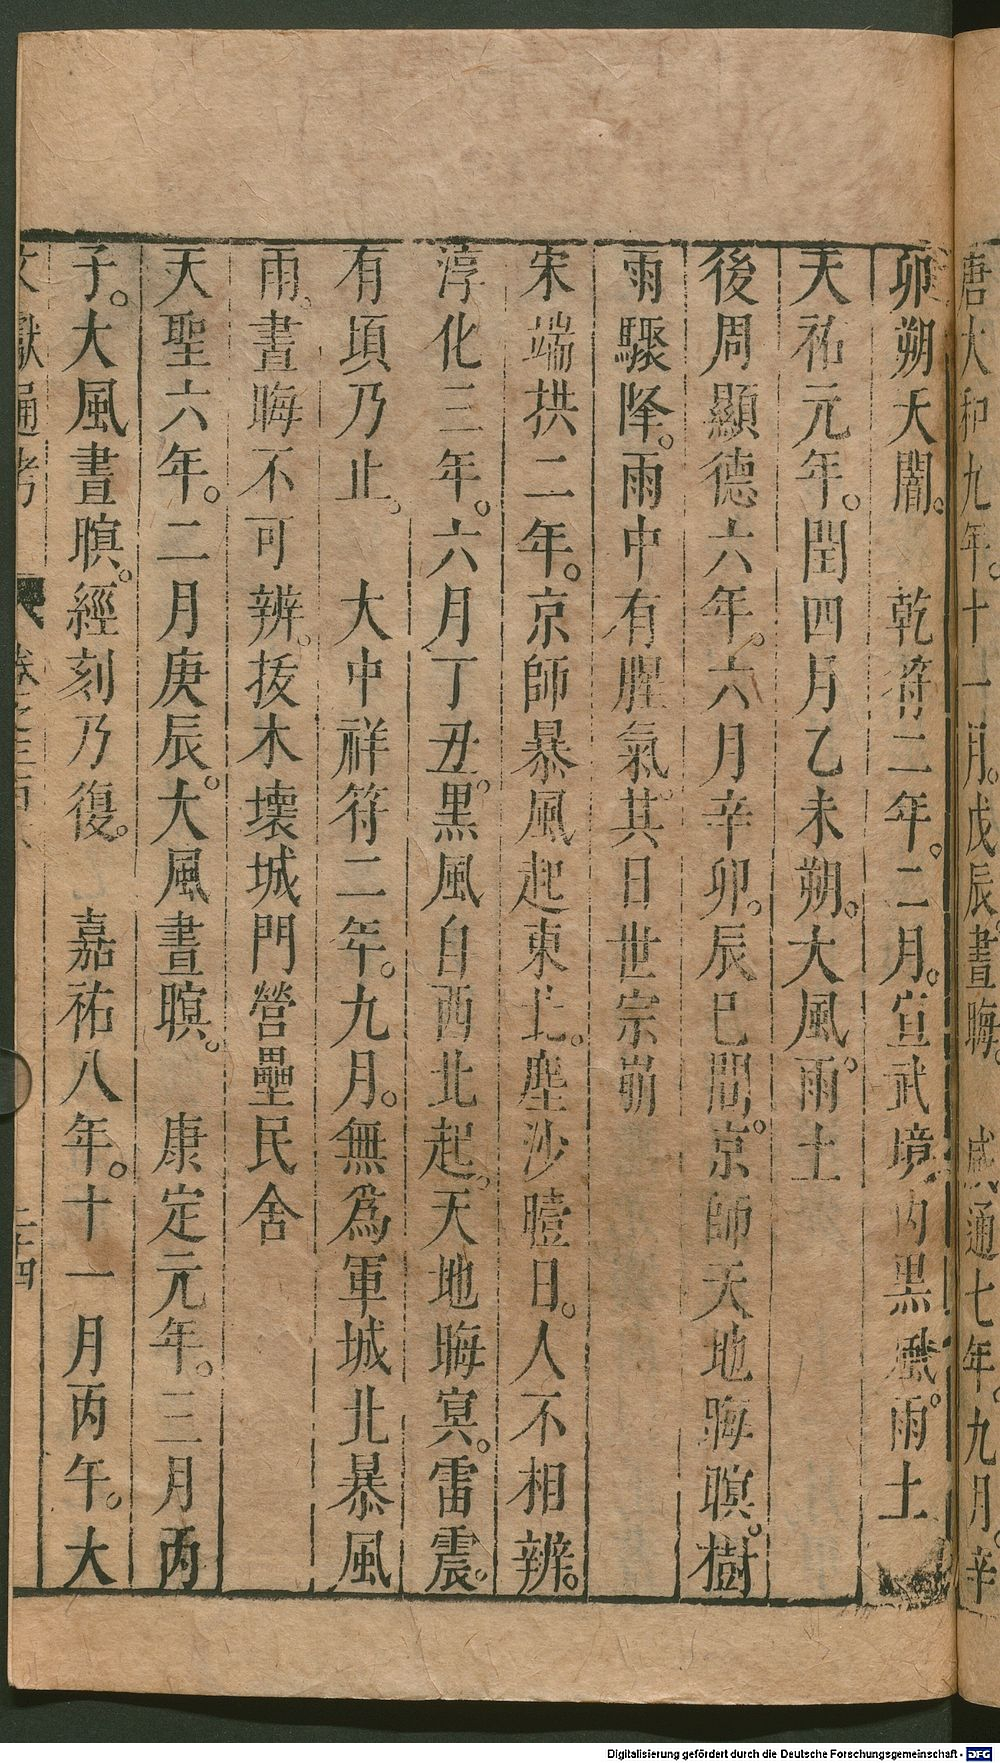 唐大和九年。十一月。戊辰。晝晦。　咸通七年。九月。辛
卯朔天闇。　乾符二年。二月。宣武境内黒風。雨土
天祐元年。閏四月乙未朔。大風。雨土
後周顯德六年。六月辛卯。辰巳間。京師天地晦暝。樹
雨驟降。雨中有腥氣。其日世宗崩
宋端拱二年。京師暴風起東北。塵沙曀日。人不相辨。
淳化三年。六月丁丑。黒風自西北起。天地晦冥。雷震。
有頃乃止。　大中祥符二年。九月。無爲軍城北暴風
雨。晝晦不可辨。拔木壞城門營壘民舍
天聖六年。二月庚辰。大風晝暝。　康定元年。三月丙
子。大風晝暝。經刻乃復。　嘉祐八年。十一月丙午。大
文獻通考　卷之三百六　二十四
Digitalisierung gefördert durch die Deutsche Forschungsgemeinschaft - DFG